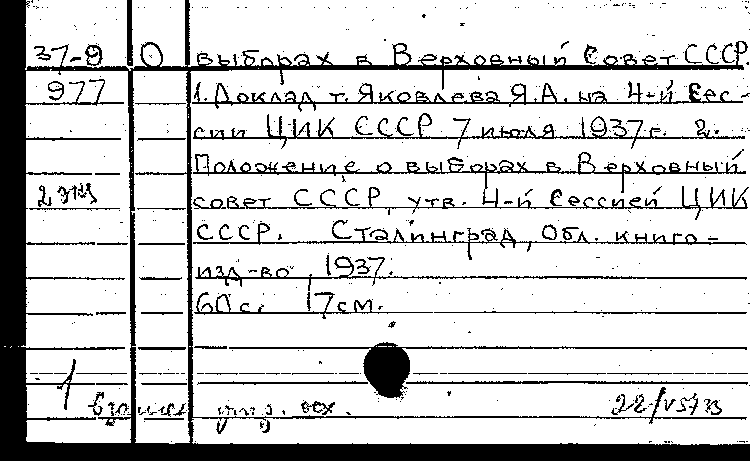 37-9 О выборах в Верховный Совет СССР.
977 1. Доклад т. Яковлева Я.А. на 4-й Сес-
сии ЦИК СССР 7 июля 1937г. 2.
Положение о выборах в Верховный
2 экз совет СССР, утв. 4-й Сессией ЦИК
СССР. Сталинград, Обл. книго-
изд-во, 1937.
60с. 17см.
1